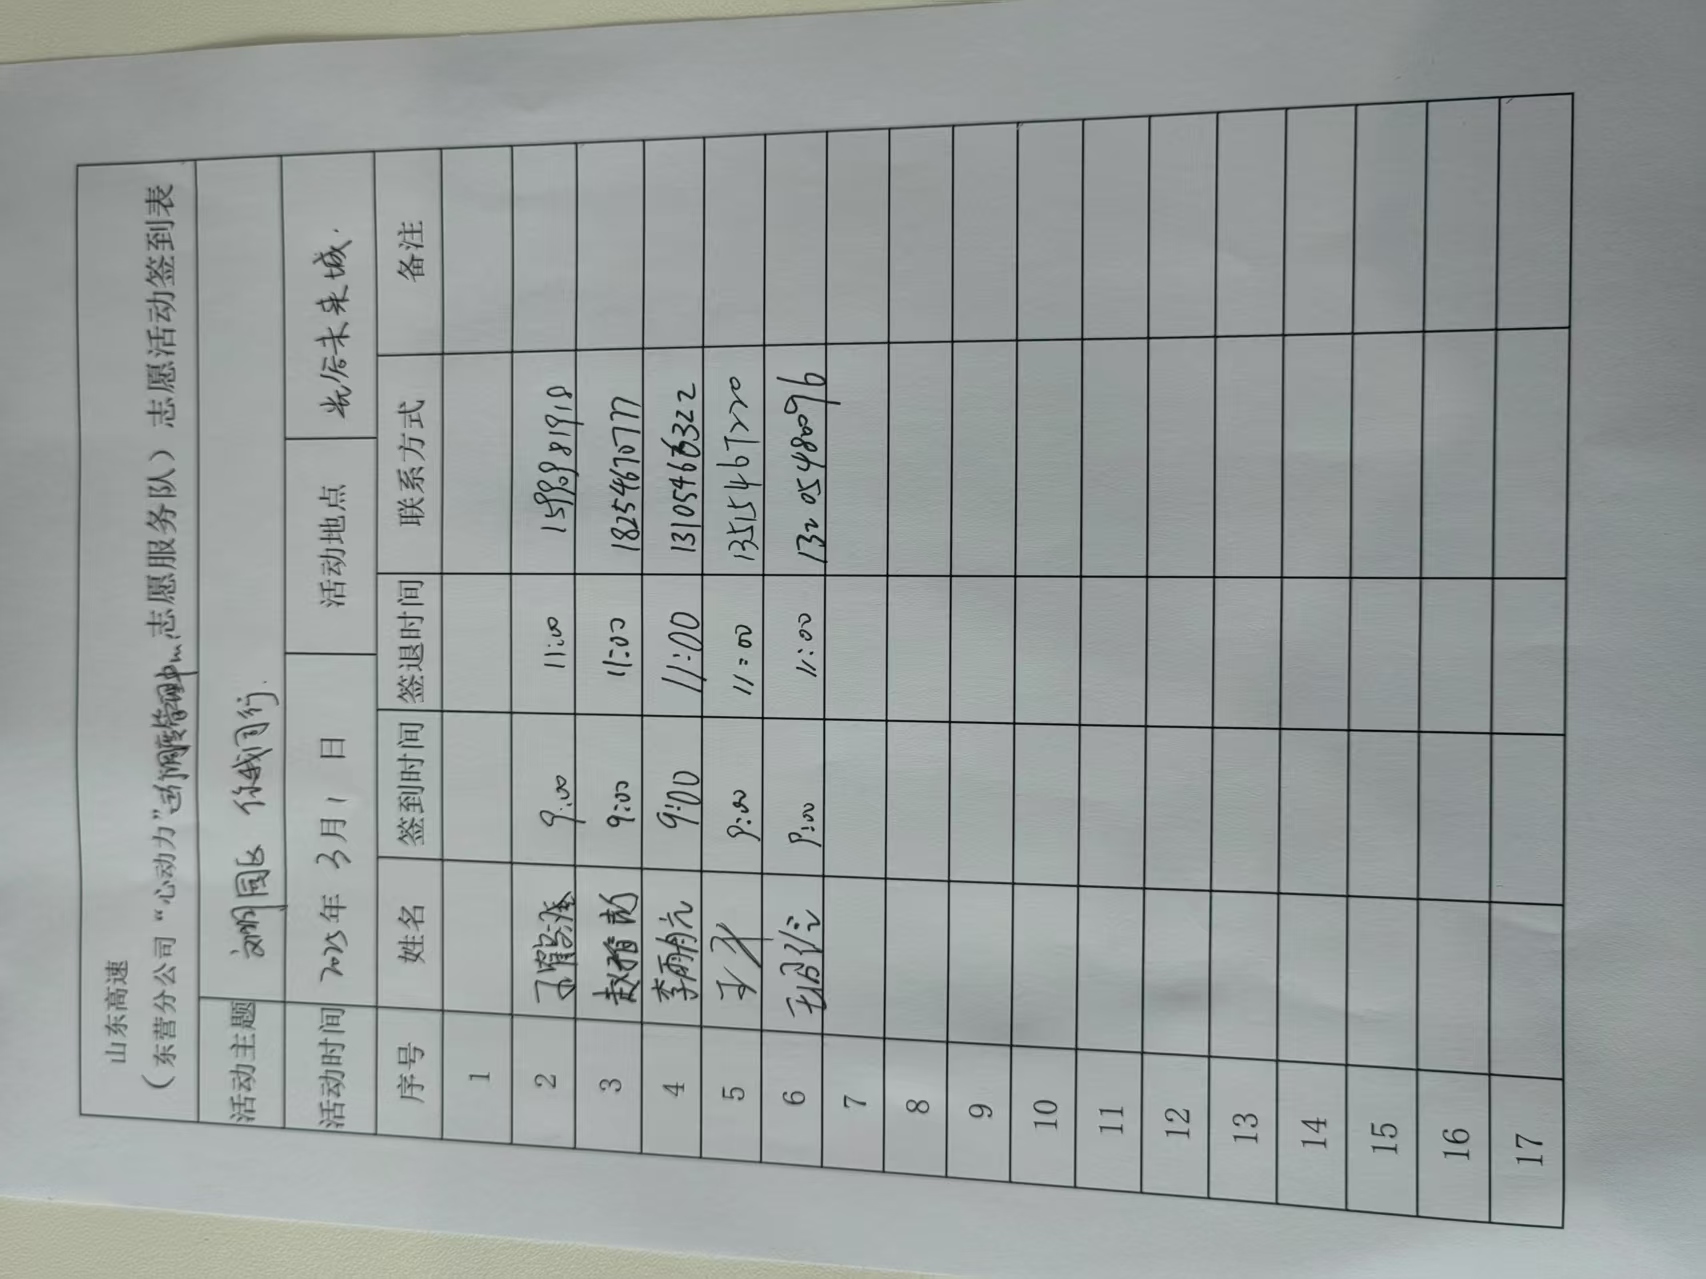 山东高速
（东营分公司“心动力” 志愿服务队）志愿活动签到表
活动主题 文明同心 你我同行.
活动时间 2025年 3月 1 日 活动地点 长信未来城.
序号 姓名 签到时间 签退时间 联系方式 备注
1
2 9:00 11:00
3 9:00 11:00 18254670777
4 李雨亢 9:00 11:00
5 9:00 11:00 13515467220
6 9:00 11:00 13205480096
7
8
9
10
11
12
13
14
15
16
17